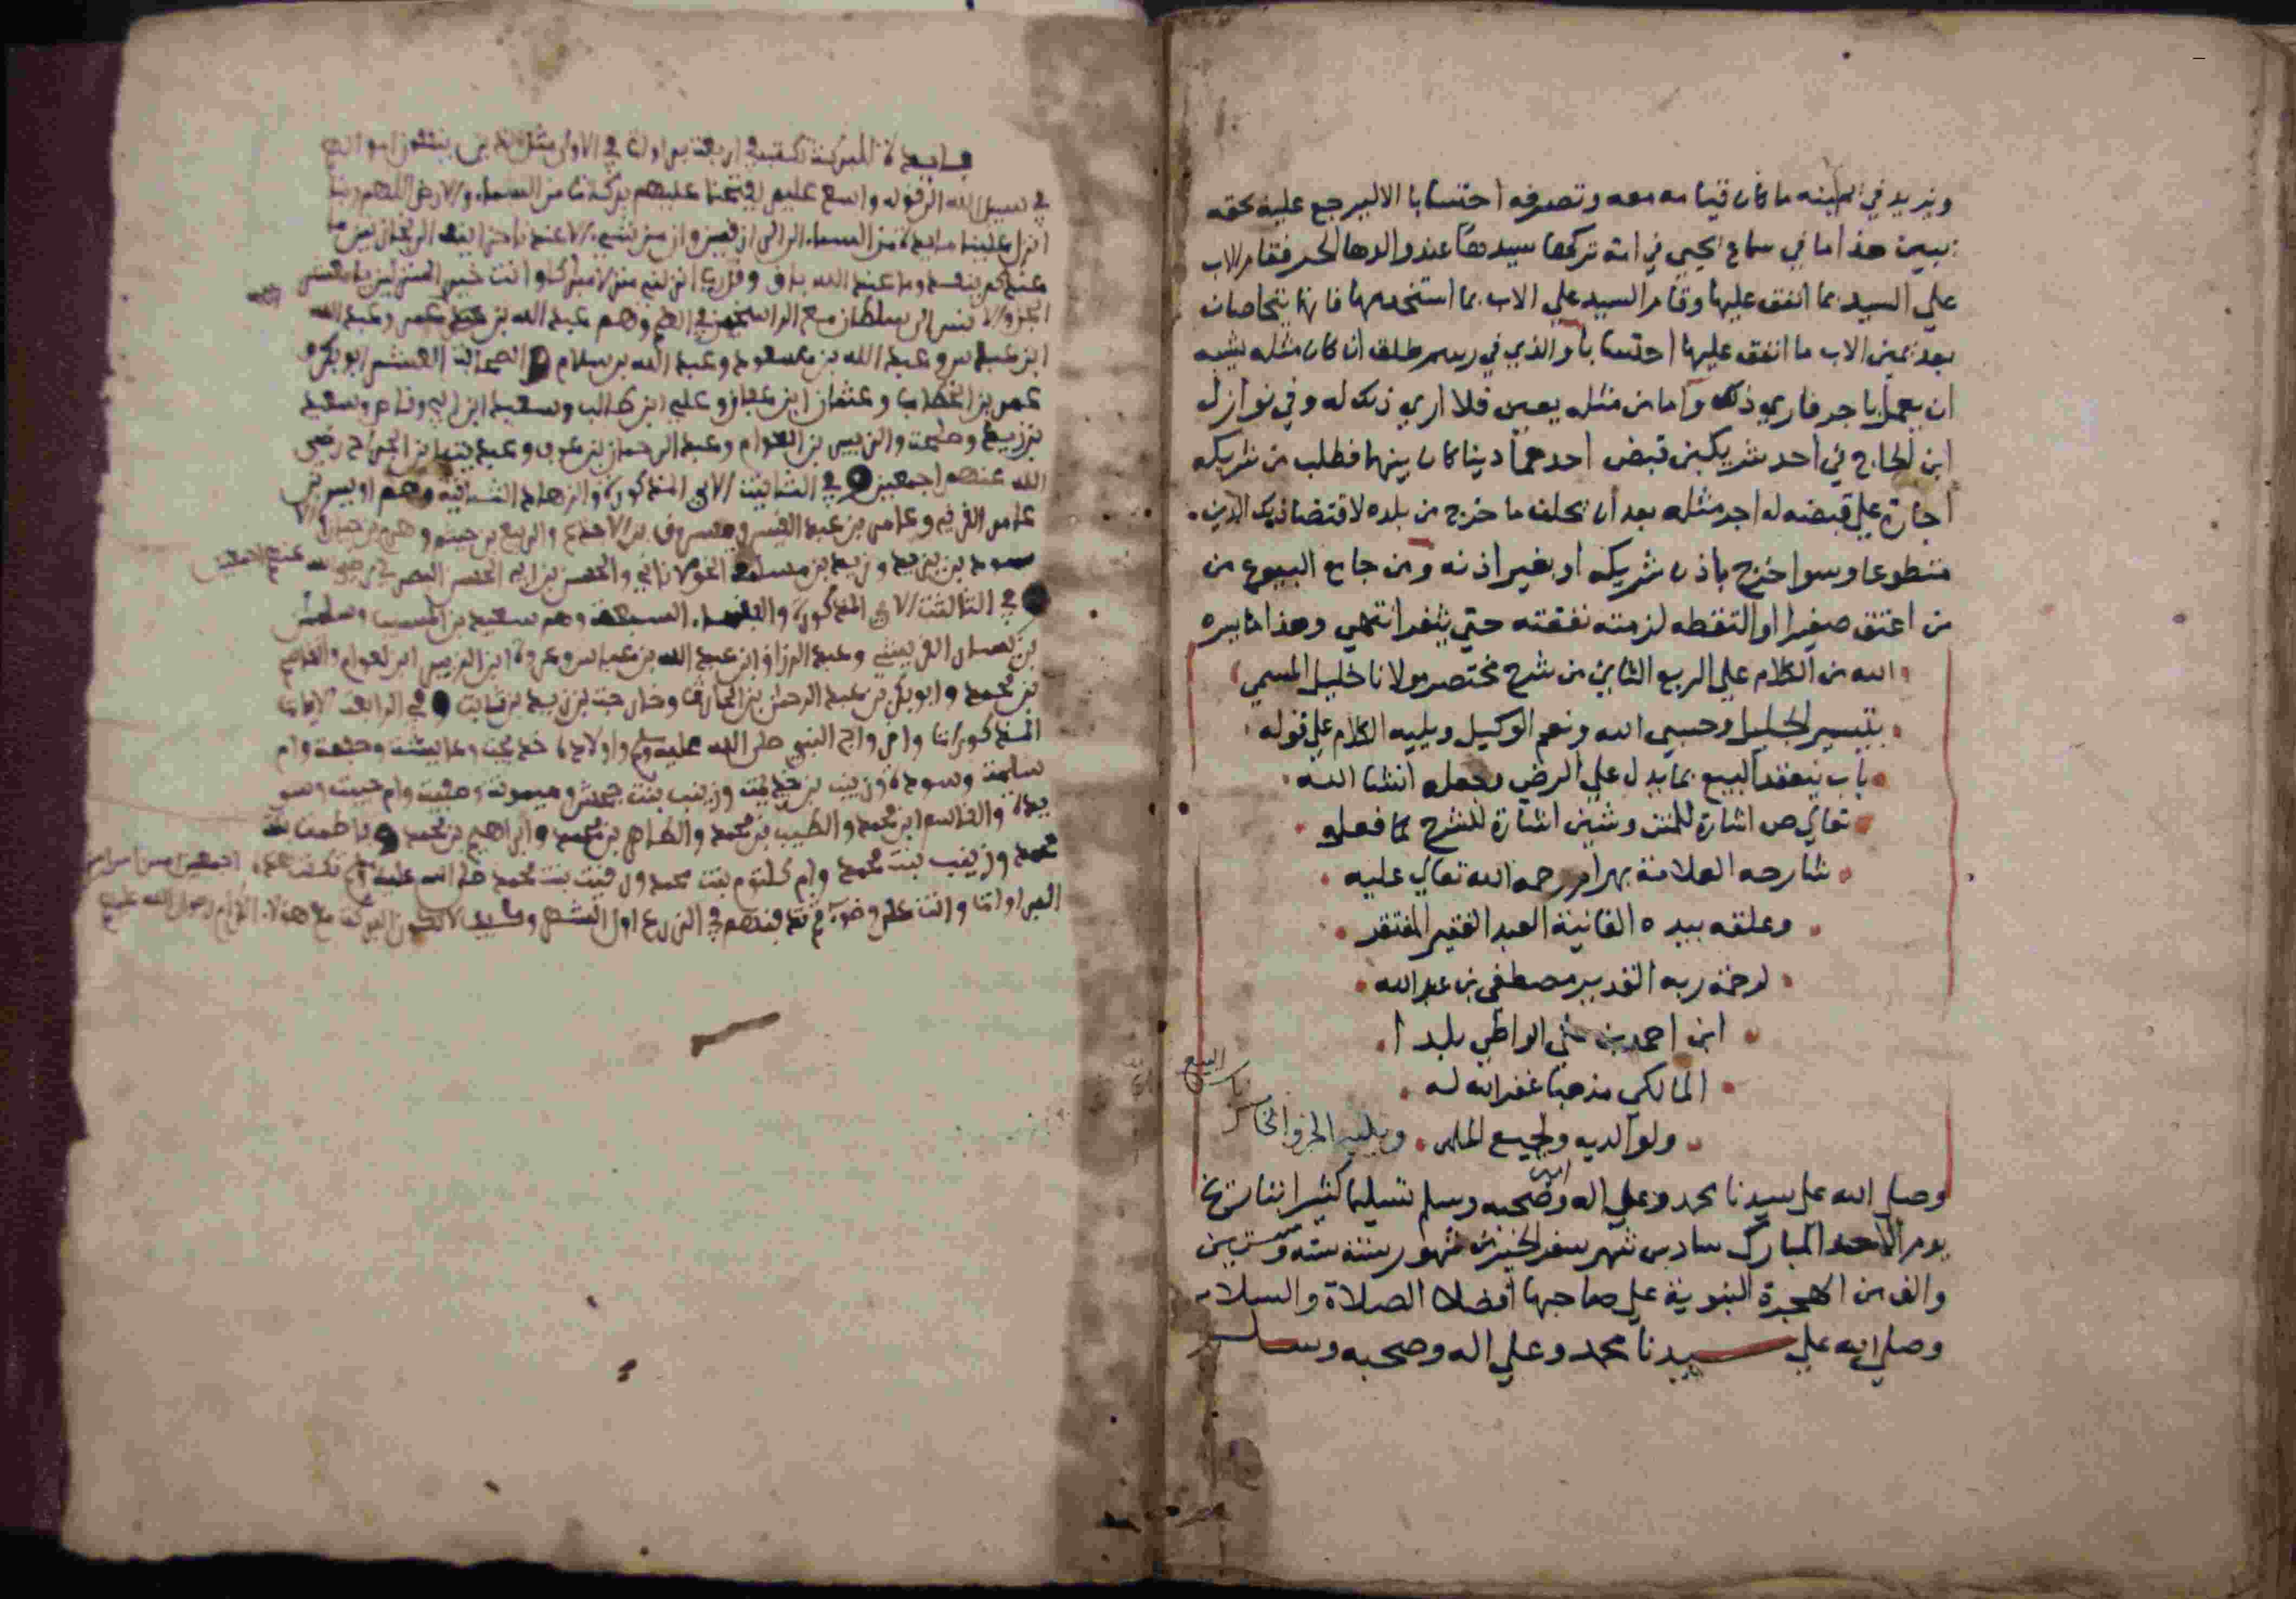 ويزيد في يمينه ما كان قيامه معه وتصرفه احتسابا الا ليرجع عليه بحقه
يبين هذا ما في سماع يحيي في امة تركها سيدها عند والدها الحر فقام الاب
علي السيد بما انفق عليها وقام السيد علي الاب بما استخدمها فانها يتحاصان
بعد يمين الاب ما انفق عليها احتسابا والذي في رسم طلق ان كان مثله يشبه
ان يعمل باجر فاري ذلك واما من مثله يعين فلا اري ذلك له وفي نوازل
ابن الحاج في احد شريكين قبض احدهما دينا كان بينهما فطلب من شريكه
اجازة علي قبضه له اجر مثله بعد ان يحلف ما خرج من بلده لاقتضا ذلك الدين
متطوعا وسوا خرج باذن شريكه او بغير اذنه ومن جامع البيوع من
من اعتق صغيرا او التقطه لزمته نفقته حتي يثغر انتهي وهذا ما يسره
الله من الكلام علي الربع الثاني من شرح مختصر مولانا خليل المسمي
بتيسير الجليل وحسبي الله ونعم الوكيل ويليه الكلام علي قوله
باب ينعقد البيع بما يدل علي الرضي وجعله انشا الله
تعالي ص اشارة للمتن وشين اشارة للشرح كما فعله
شارحه العلامة بهرام رحمه الله تعالي عليه
وعلقه بيده الفانية العبد الفقير المفتقر
لرحمة ربه القدير مصطفي بن عبد الله
ابن احمد بن علي الواطي بلدا
المالكي مذهبا غفر الله له
ولوالديه ولجميع المسلمين ويليه الجزو الخامس
باب البيع
امين
وصلي الله علي سيدنا محمد وعلي اله وصحبه وسلم تسليما كثيرا بتاريخ
يوم الاحد المبارك سادس شهر سفر الخير من شهور سنة سته وستين
والف من الهجرة النبوية علي صاحبها افضل الصلاة والسلام
وصلي الله علي سيدنا محمد وعلي اله وصحبه وسلم
فايدة للبركة تكتب في اربعة براوات في الاولي مثل الذين ينفقون اموالهم
في سبيل الله الي قوله واسع عليم لفتحنا عليهم بركات من السماء والارض اللهم ربنا
انزل علينا مايدة من السماء الي الرازقين وان من شيء الا عندنا خزاينه
عندكم ينفد وما عند الله باق وقل رب انزلني منزلا مباركا وانت خير المنزلين يا معشر
الجن والانس الي سلطان مع الراسخين في العلم وهم عبد الله بن عمر وعبد الله
ابن عباس وعبد الله بن مسعود وعبد الله بن سلام والصحابة العشر ابو بكر و
عمر بن الخطاب وعثمان ابن عفان وعلي ابن طالب وسعد ابن ابي وقاص وسعيد
بن زيد وطلحة والزبير بن العوام وعبد الرحمان بن عوف وعبيدة ابن الجراح رضي
الله عنهم اجمعين في الثانية الاي المذكورة والزهاد الثمانية وهم اويس بن
عامر القرني وعامر بن عبد القيس ومسروق بن الاجدع والربيع بن خيثم وهرم بن حيان والا
سود بن يزيد و بن مسلم الخولاني والحسن بن ابي الحسن البصري رضي الله عنهم اجمعين
في الثالثة الاي المذكورة والفقهاء السبعة وهم سعيد بن المسيب وسليمان
بن يسار وعبد الله بن عباس وعروة ابن الزبير ابن العوام والقاسم
بن محمد وابو بكر بن عبد الرحمان بن الحارث وخارجة بن زيد بن ثابت في الرابعة الايات
المذكورات وازواج النبي صلى الله عليه وسلم واولاده خديجة وعايشة وحفصة وام
سلمة وسودة وزينب بن خزيمة وزينب بنت جحش وميمونة وصفية وام حبيبة
والقاسم ابن محمد والطيب بن محمد والطاهر بن محمد وابراهيم بن محمد وفاطمة بنت
محمد وزينب بنت محمد وام كلثوم بنت محمد ورقية بنت محمد صلى الله عليه وسلم
البراوات وانت على وضوء ثم تدفنهم في الزرع